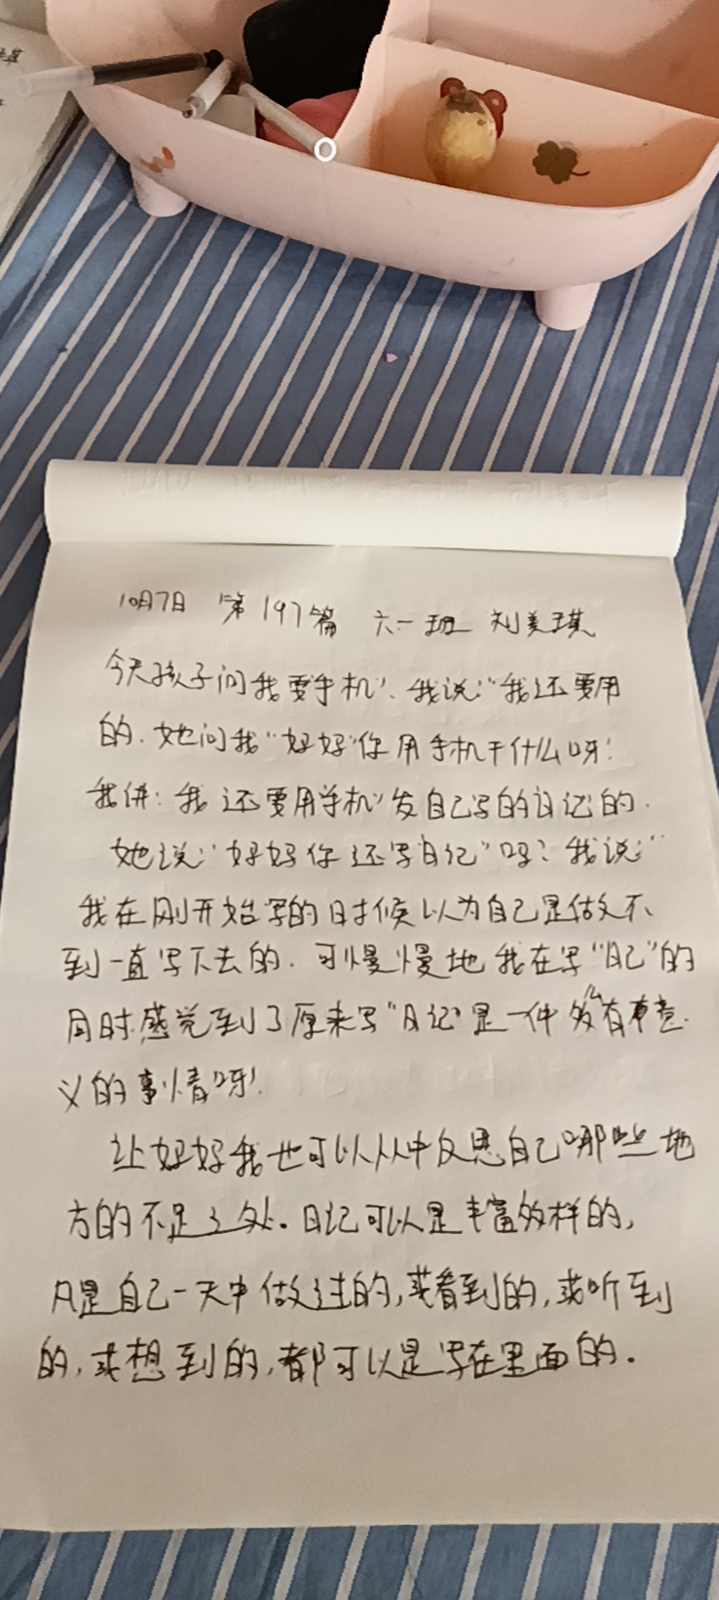 10月7日 第197篇 六一班 刘美琪
今天孩子问我要手机”、我说:“我还要用
的.她问我“好好”你用手机干什么呀!
我讲:我还要用手机”发自己写的日记的.
她说:“好好你还写日记”吗?我说:“
我在刚开始写的时候以为自己是做不
到一直写下去的.可慢慢地我在写“日记”的
同时感觉到了原来写“日记”是一件多么有意
义的事情呀!
让好好我也可以从中反思自己哪些地
方的不足之处.日记可以是丰富多样的,
凡是自己一天中做过的,或看到的,或听到
的,或想到的,都可以是写在里面的.